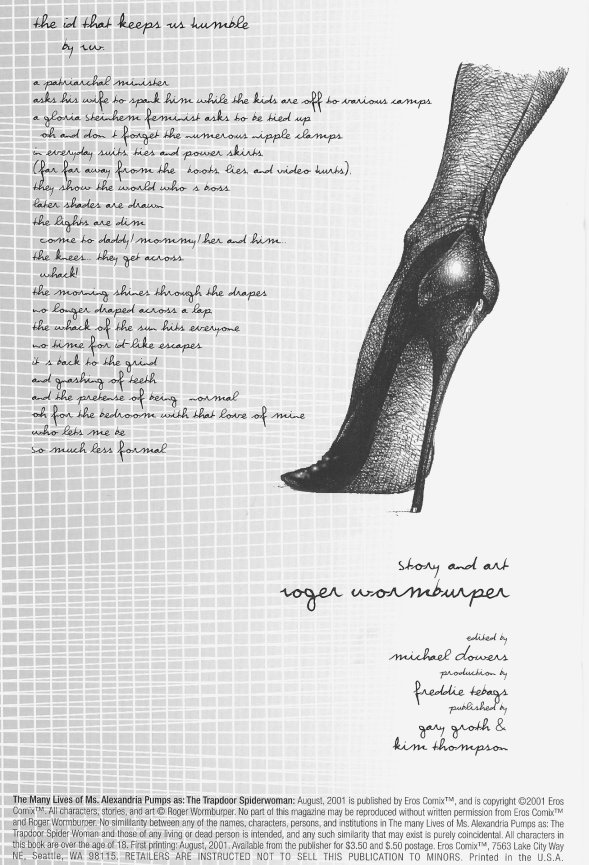 the id that keeps us humble
by r.w.
a patriarchal minister
asks his wife to spank him while the kids are off to various camps
a gloria sternhem feminist asks to be tied up
oh and don t forget the numerous nipple clamps
in everyday suits ties and power skirts
(far far away from the boots, lies, and video hurts).
they show the world who s boss
later shades are drawn
the lights are dim
come to daddy/ mommy/ her and him...
the knees... they get across
whack!
the morning shines through the drapes
no longer draped across a lap
the whack of the sun hits everyone
no time for id-like escapes
it s back to the grind
and gnashing of teeth
and the pretense of being normal
oh for the bedroom with that love of mine
who lets me be
so much less formal
story and art
roger wormburper
edited by
michael dowers
production by
freddie tebags
published by
gary groth &
kim thompson
The Many Lives of Ms. Alexandria Pumps as: The Trapdoor Spiderwoman: August, 2001 is published by Eros Comix™, and is copyright ©2001 Eros
Comix™. All characters, stories, and art © Roger Wormburper. No part of this magazine may be reproduced without written permission from Eros Comix™
and Roger Wormburper. No similiarity between any of the names, characters, persons, and institutions in The many Lives of Ms. Alexandria Pumps as: The
Trapdoor Spider Woman and those of any living or dead person is intended, and any such similarity that may exist is purely coincidental. All characters in
this book are over the age of 18. First printing: August, 2001. Available from the publisher for $3.50 and $.50 postage. Eros Comix™, 7563 Lake City Way
NE, Seattle, WA 98115. RETAILERS ARE INSTRUCTED NOT TO SELL THIS PUBLICATION TO MINORS. Printed in the U.S.A.